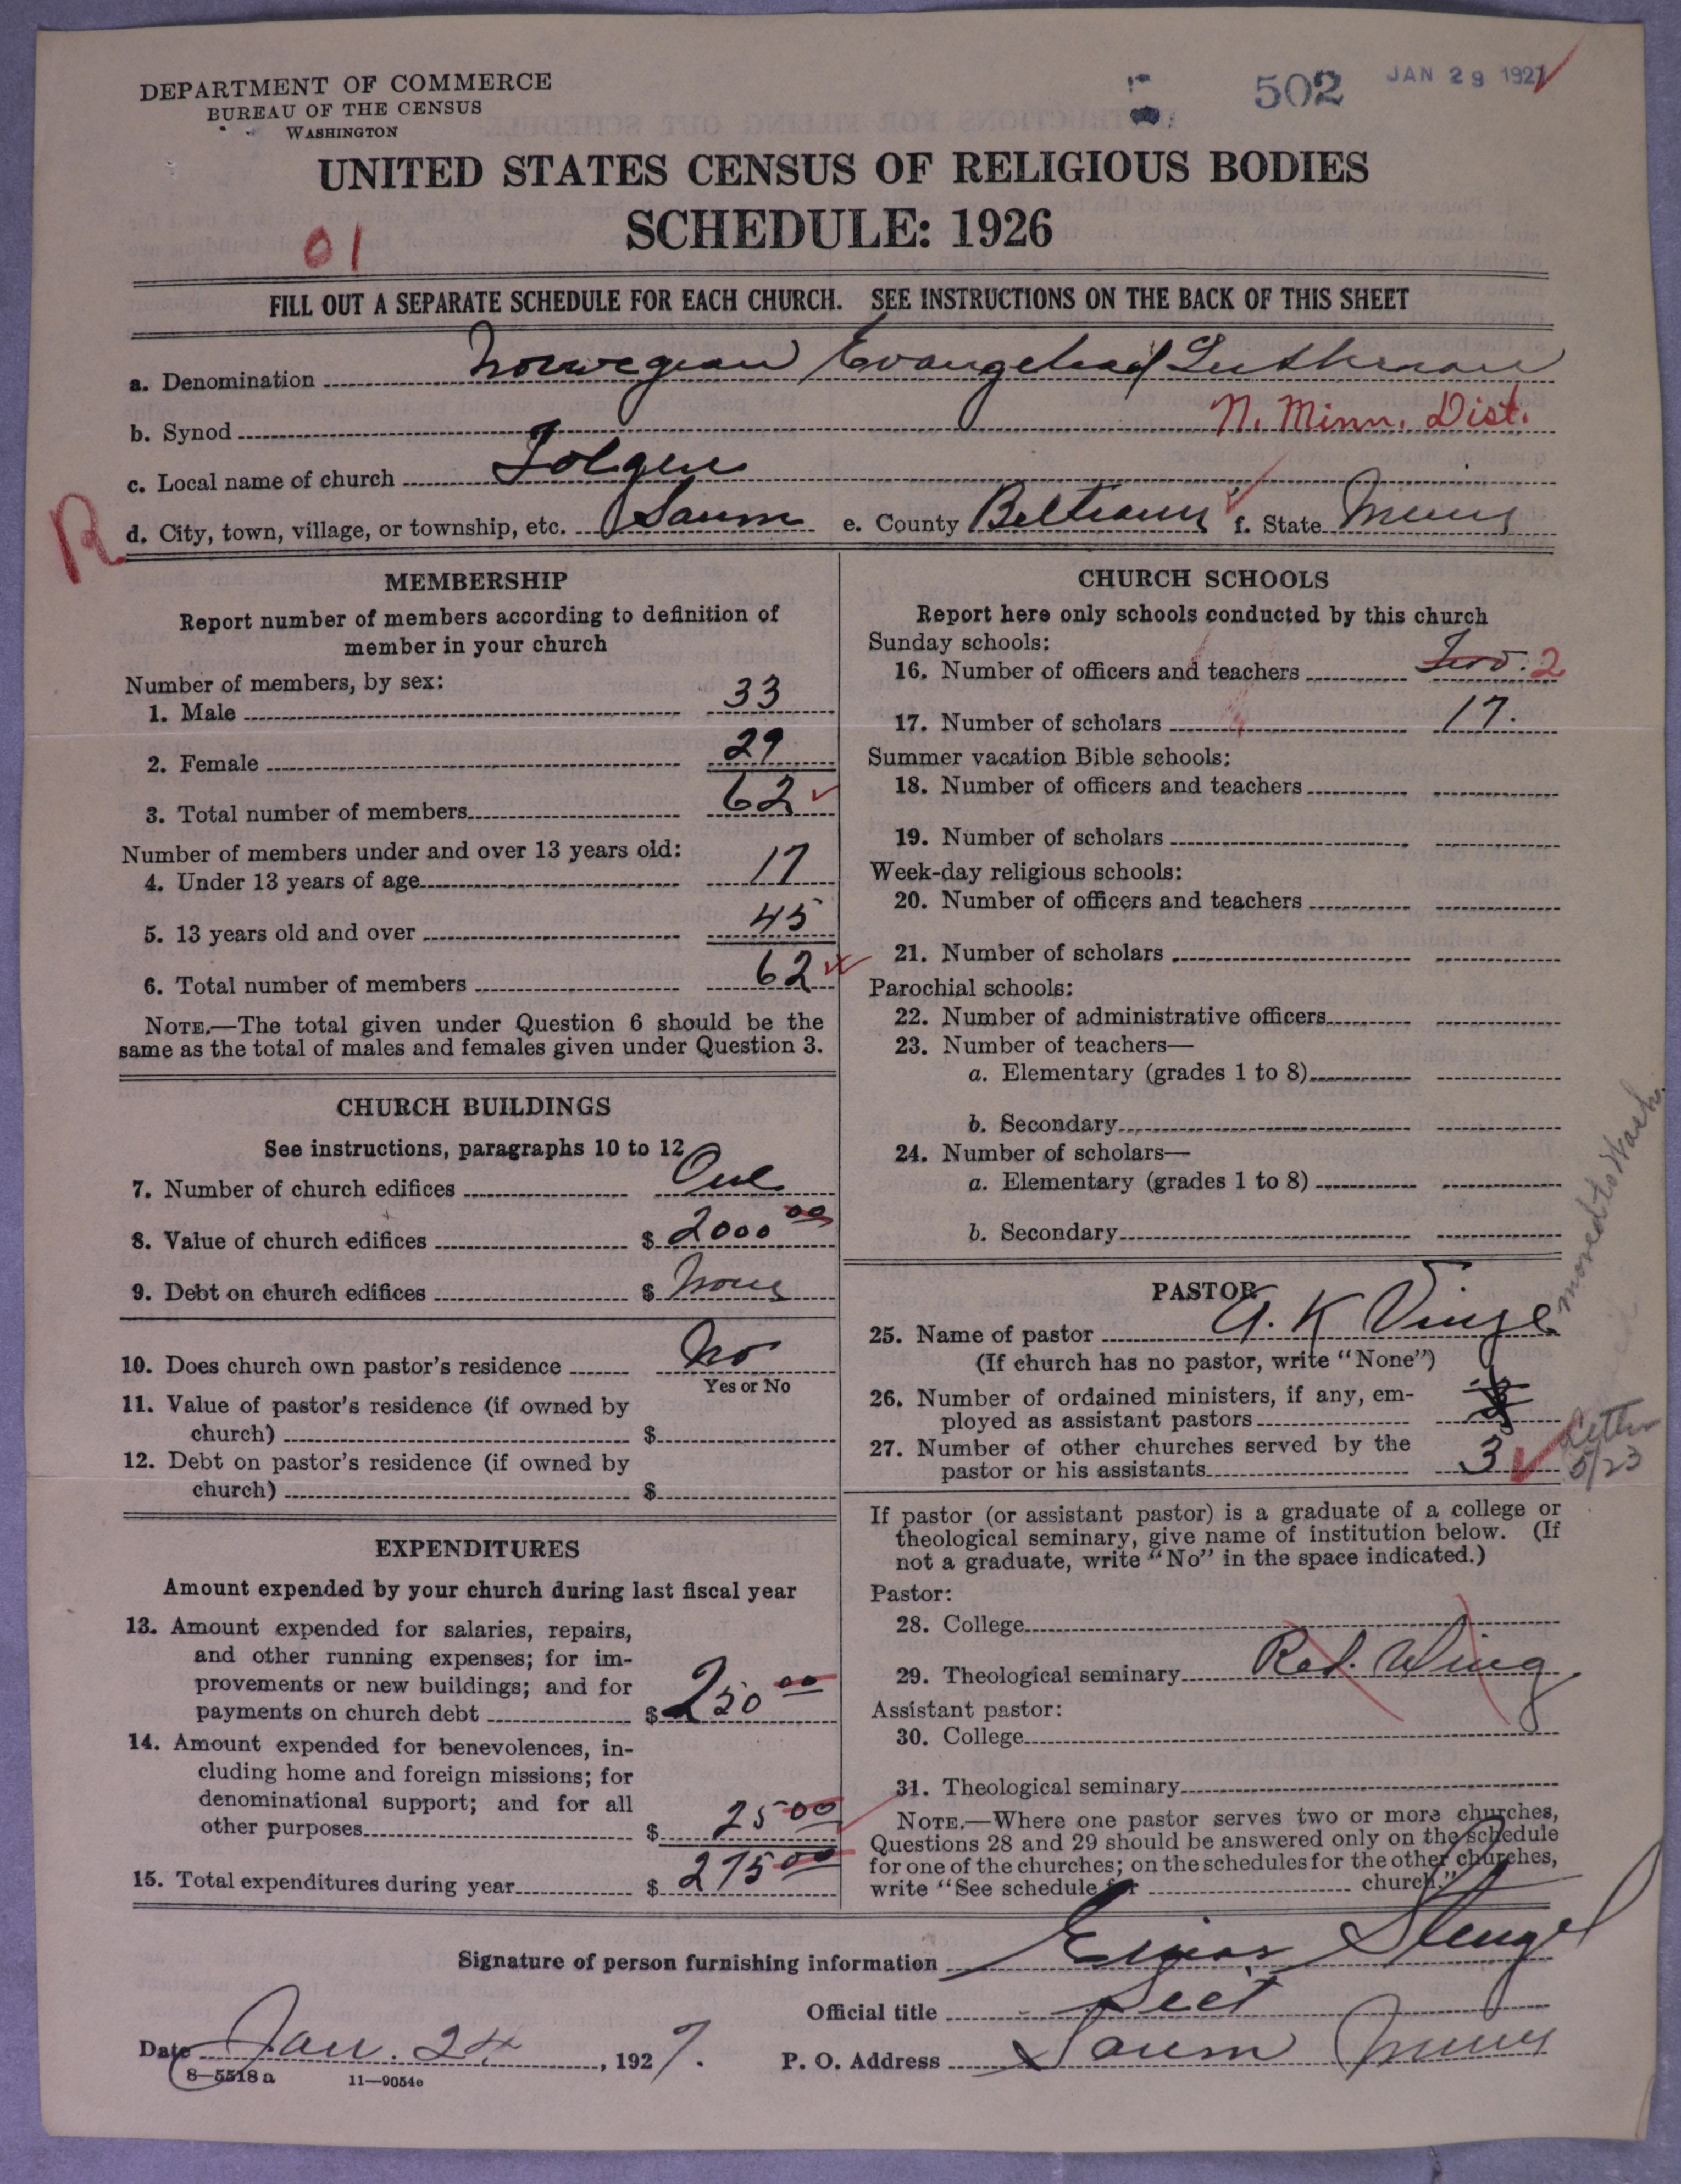 DEPARTMENT OF COMMERCE
BUREAU OF THE CENSUS
WASHINGTON
502 JAN 29 1927
UNITED STATES CENSUS OF RELIGIOUS BODIES
SCHEDULE: 1926
01
FILL OUT A SEPARATE SCHEDULE FOR EACH CHURCH. SEE INSTRUCTIONS ON THE BACK OF THIS SHEET
a. Denomination Norwegian Evangelical Lutheran
b. Synod N. Minn. Dist.
c. Local name of church
R
d. City, town, village, or township, etc. Saum e. County Beltrami f. State Minn
MEMBERSHIP
Report number of members according to definition of
member in your church
Number of members, by sex:
1. Male 33
2. Female 29
3. Total number of members 62
Number of members under and over 13 years old:
4. Under 13 years of age 17
5. 13 years old and over 45
6. Total number of members 62
NOTE.—The total given under Question 6 should be the
same as the total of males and females given under Question 3.
CHURCH BUILDINGS
See instructions, paragraphs 10 to 12
7. Number of church edifices One
8. Value of church edifices $ 2000 00
9. Debt on church edifices $ None
10. Does church own pastor's residence No
Yes or No
11. Value of pastor's residence (if owned by
church) $
12. Debt on pastor's residence (if owned by
church) $
EXPENDITURES
Amount expended by your church during last fiscal year
13. Amount expended for salaries, repairs,
and other running expenses; for im-
provements or new buildings; and for
payments on church debt $ 250 00
14. Amount expended for benevolences, in-
cluding home and foreign missions; for
denominational support; and for all
other purposes $ 25 00
15. Total expenditures during year $ 275 00
CHURCH SCHOOLS
Report here only schools conducted by this church
Sunday schools:
16. Number of officers and teachers Two. 2
17. Number of scholars 17.
Summer vacation Bible schools:
18. Number of officers and teachers
19. Number of scholars
Week-day religious schools:
20. Number of officers and teachers
21. Number of scholars
Parochial schools:
22. Number of administrative officers
23. Number of teachers—
a. Elementary (grades 1 to 8)
b. Secondary
24. Number of scholars—
a. Elementary (grades 1 to 8)
b. Secondary
moved to Wash.
PASTOR
25. Name of pastor K Vinge
(If church has no pastor, write "None")
26. Number of ordained ministers, if any, em-
ployed as assistant pastors
27. Number of other churches served by the
pastor or his assistants 3
Letter
5/23
If pastor (or assistant pastor) is a graduate of a college or
theological seminary, give name of institution below. (If
not a graduate, write "No" in the space indicated.)
Pastor:
28. College
29. Theological seminary Red. Wing
Assistant pastor:
30. College
31. Theological seminary
NOTE.—Where one pastor serves two or more churches,
Questions 28 and 29 should be answered only on the schedule
for one of the churches; on the schedules for the other churches,
write "See schedule for church."
Signature of person furnishing information Stengel
Official title Sect
Date Jan. 24, 1927. P. O. Address Saum Minn
8—5518 a 11—9054e